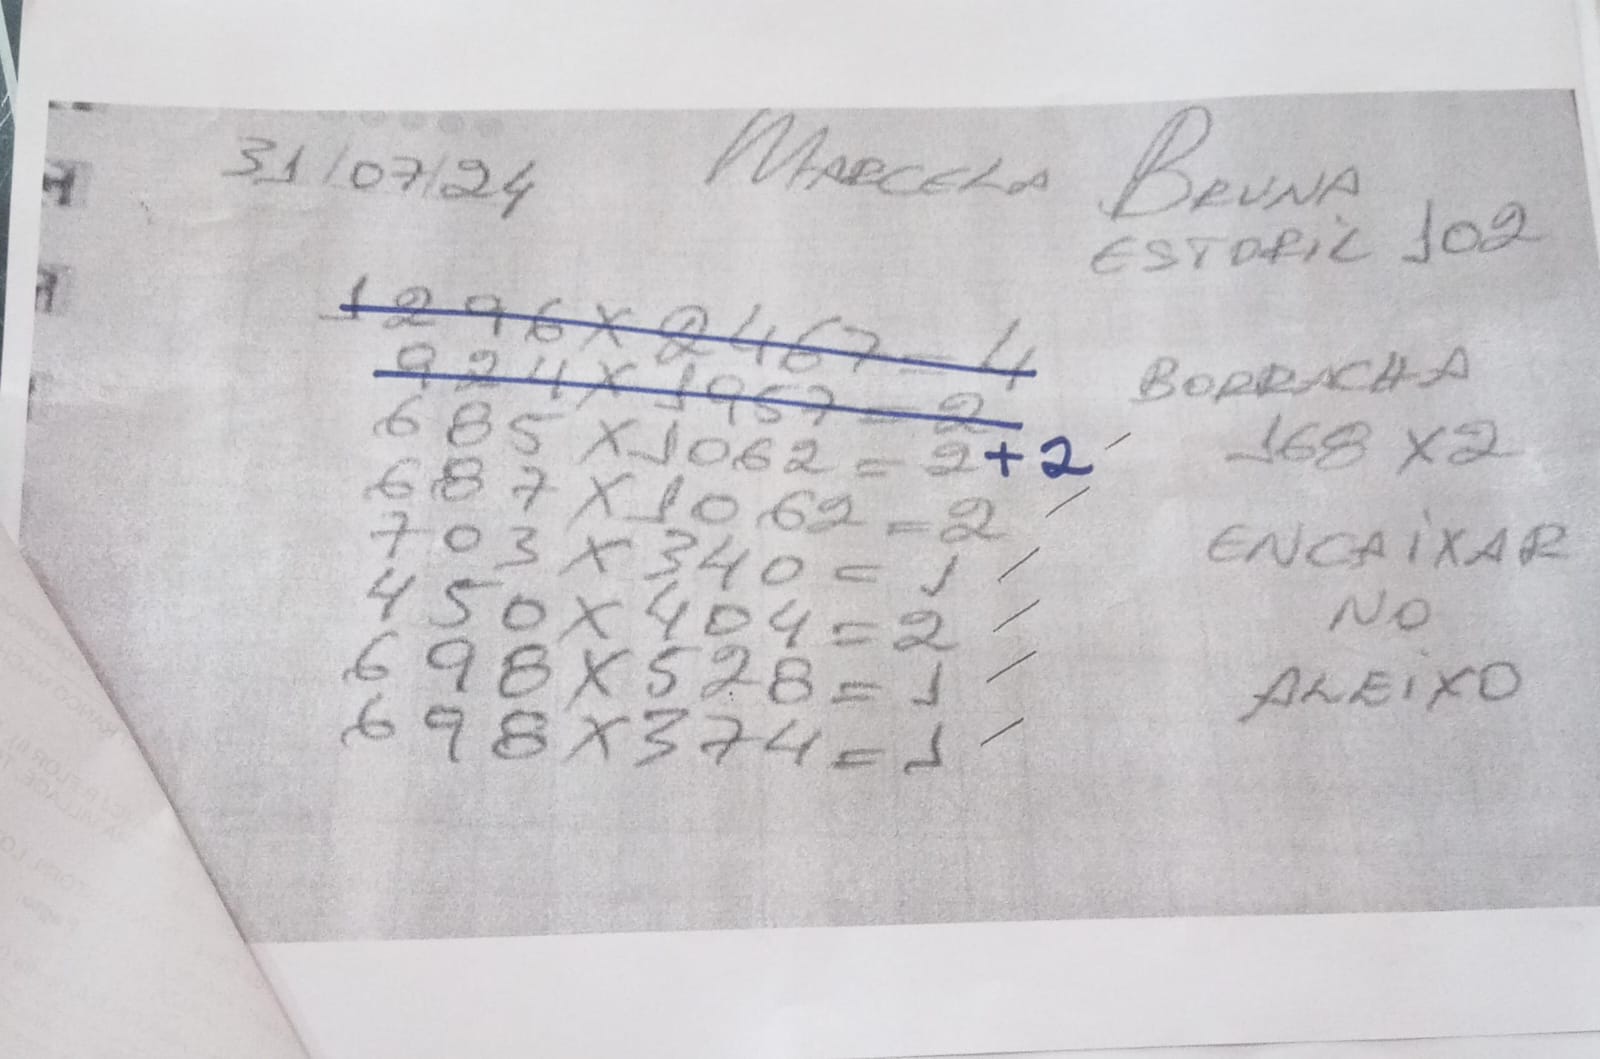 31/07/24 MARCELA BRUNA
ESTORIL 102
1296 X 2467 = 4
924 X 1957 = 2
685 X 1062 = 2 + 2
687 X 1062 = 2
703 X 340 = 1
450 X 404 = 2
698 X 528 = 1
698 X 374 = 1
BORRACHA
168 X 2
ENCAIXAR
NO
ALEIXO